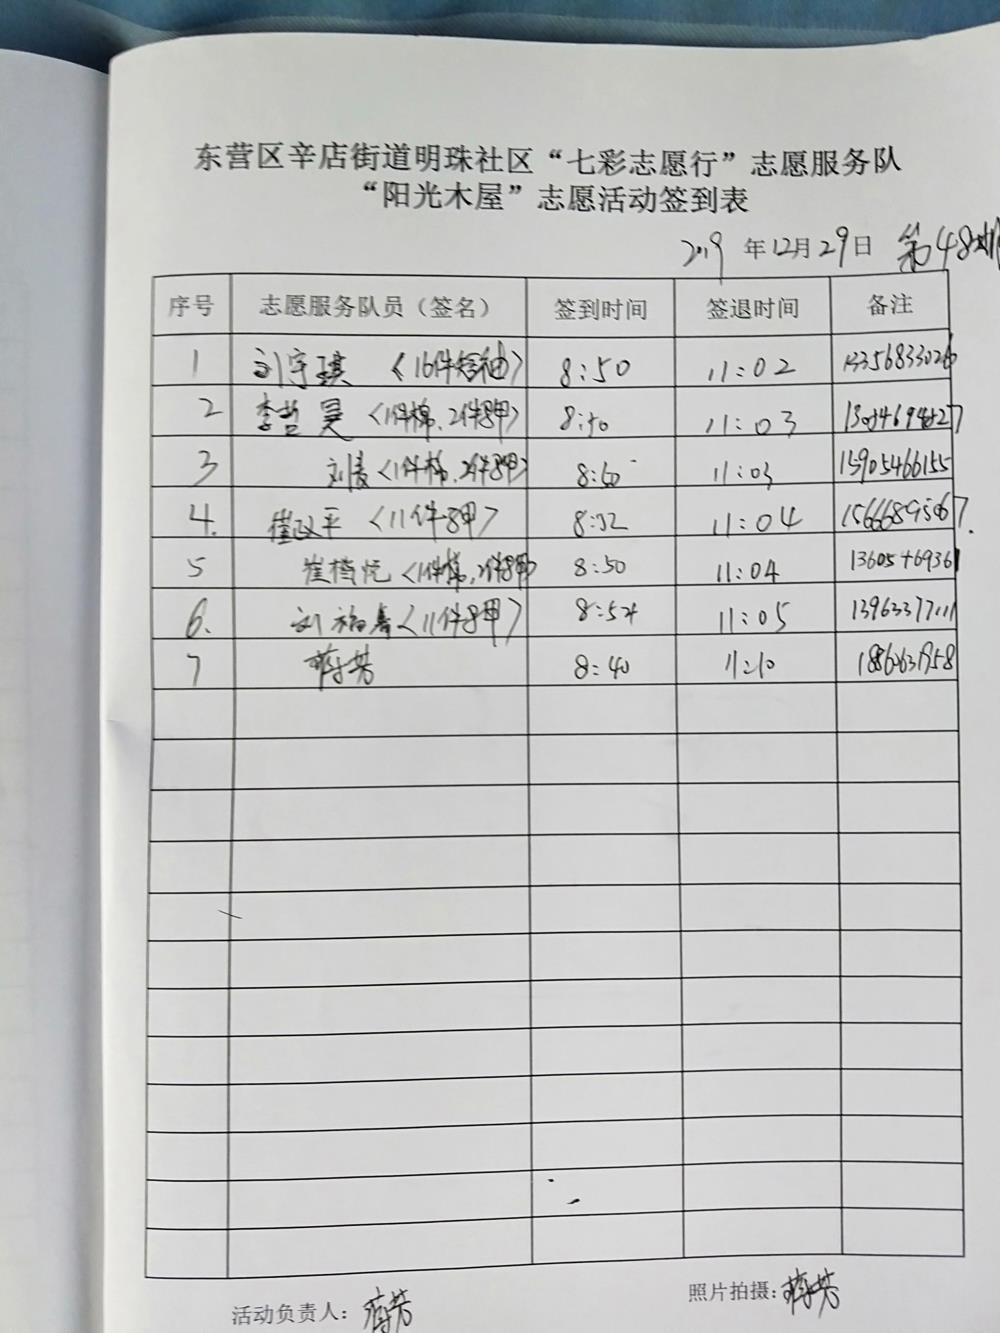 东营区辛店街道明珠社区“七彩志愿行”志愿服务队
“阳光木屋”志愿活动签到表
2019 年12月29日 第48期
序号 志愿服务队员（签名） 签到时间 签退时间 备注
1 刘宇琪 （16件短袖） 8:50 11:02
2 李哲昊（1件棉、2件8甲） 8:50 11:03
3 刘（1件棉、2件8甲） 8:50 11:03 15905466155
4. 崔政平（11件8甲） 8:52 11:04 15666895067.
5 崔 （1件棉,2件8甲） 8:50 11:04 13605469361
6. 刘福春（11件8甲） 8:54 11:05
7 蒋芳 8:40 11:10
活动负责人：蒋芳
照片拍摄：蒋芳